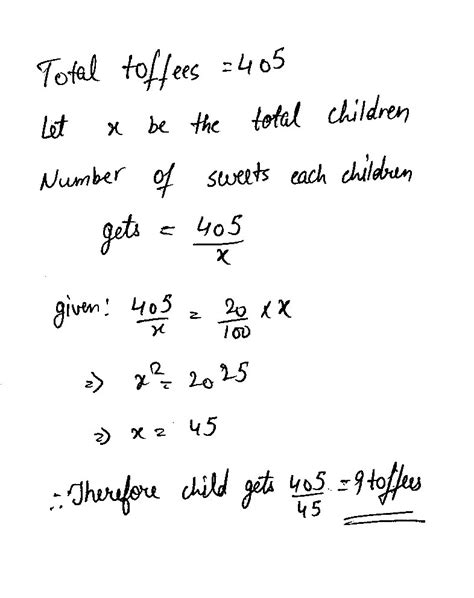 Total toffees = 405
Let x be the total children
Number of sweets each children
gets = 405/x
given: 405/x = 20/100 × x
⇒ x² = 2025
⇒ x = 45
∴ Therefore child gets 405/45 = 9 toffees